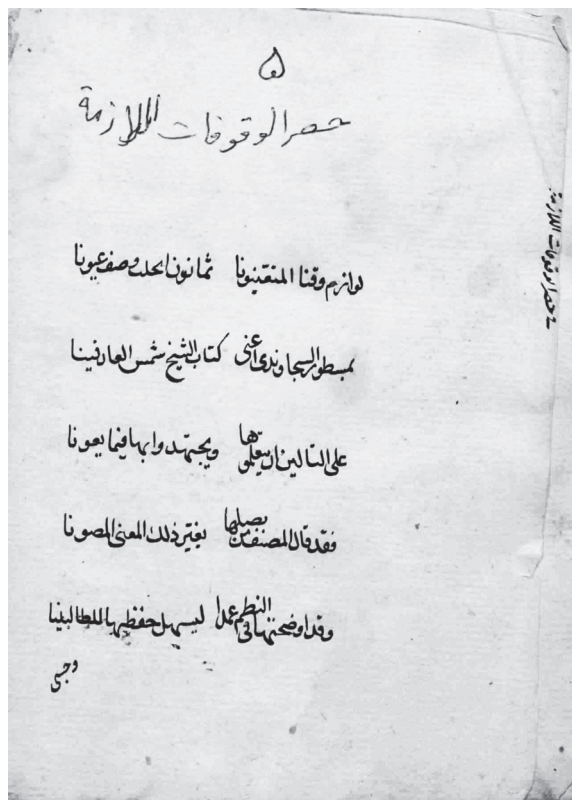 ٥
حصر الوقوفات اللازمة
في حصر الوقوفات اللازمة
لوازم وقفنا المتقينونا ثمانون انجلت وصفت عيونا
بمسطور السجاوندي أعني كتاب الشيخ شمس العارفينا
على التالين ان يتعلموها ويجتهدوا بها فيما يعونا
فقد قال المصنف من يصلها يغير ذلك المعنى المصونا
وقد اوضحتها في النظم عمدا ليسهل حفظها للطالبينا